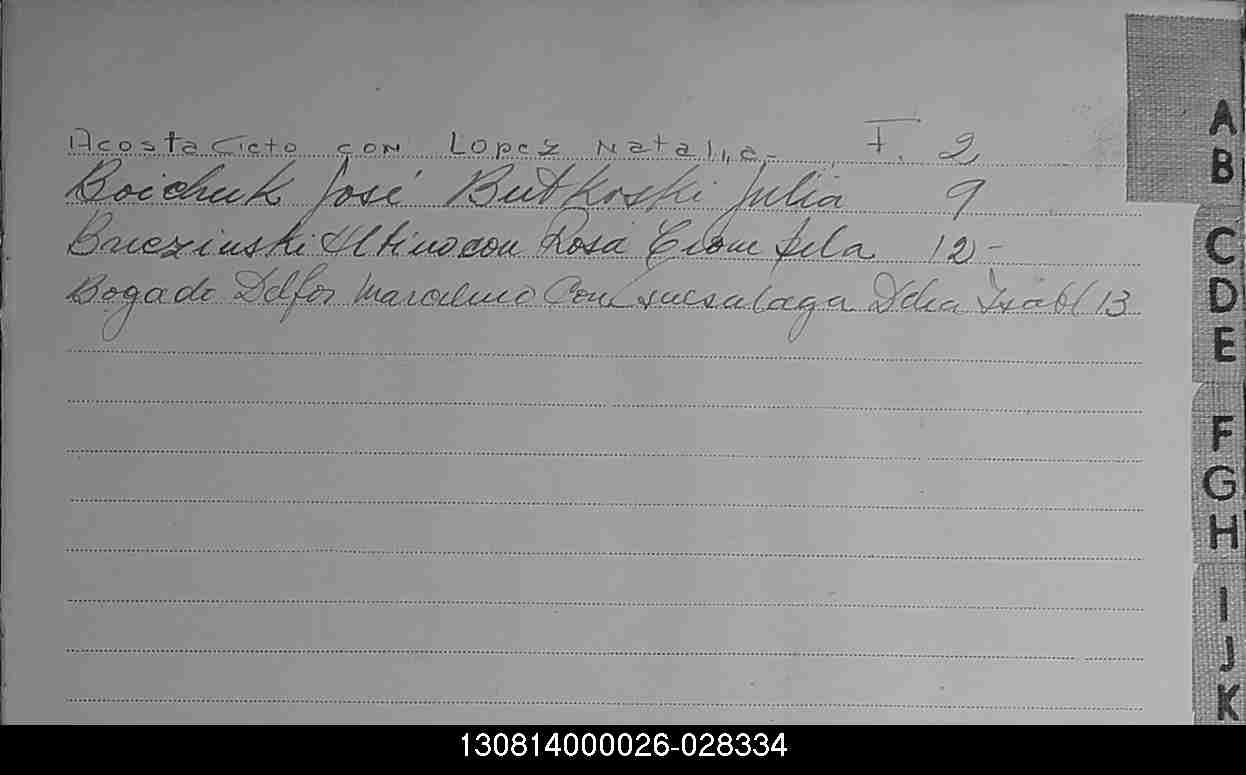 Acosta Cieto con Lopez Natalia - F. 2
Boichuk José Butkoski Julia 9
Albino con Rosa 12 -
Bogado Delfor Marcelino Con Delia Isabel 13
A
B
C
D
E
F
G
H
I
J
K
130814000026-028334